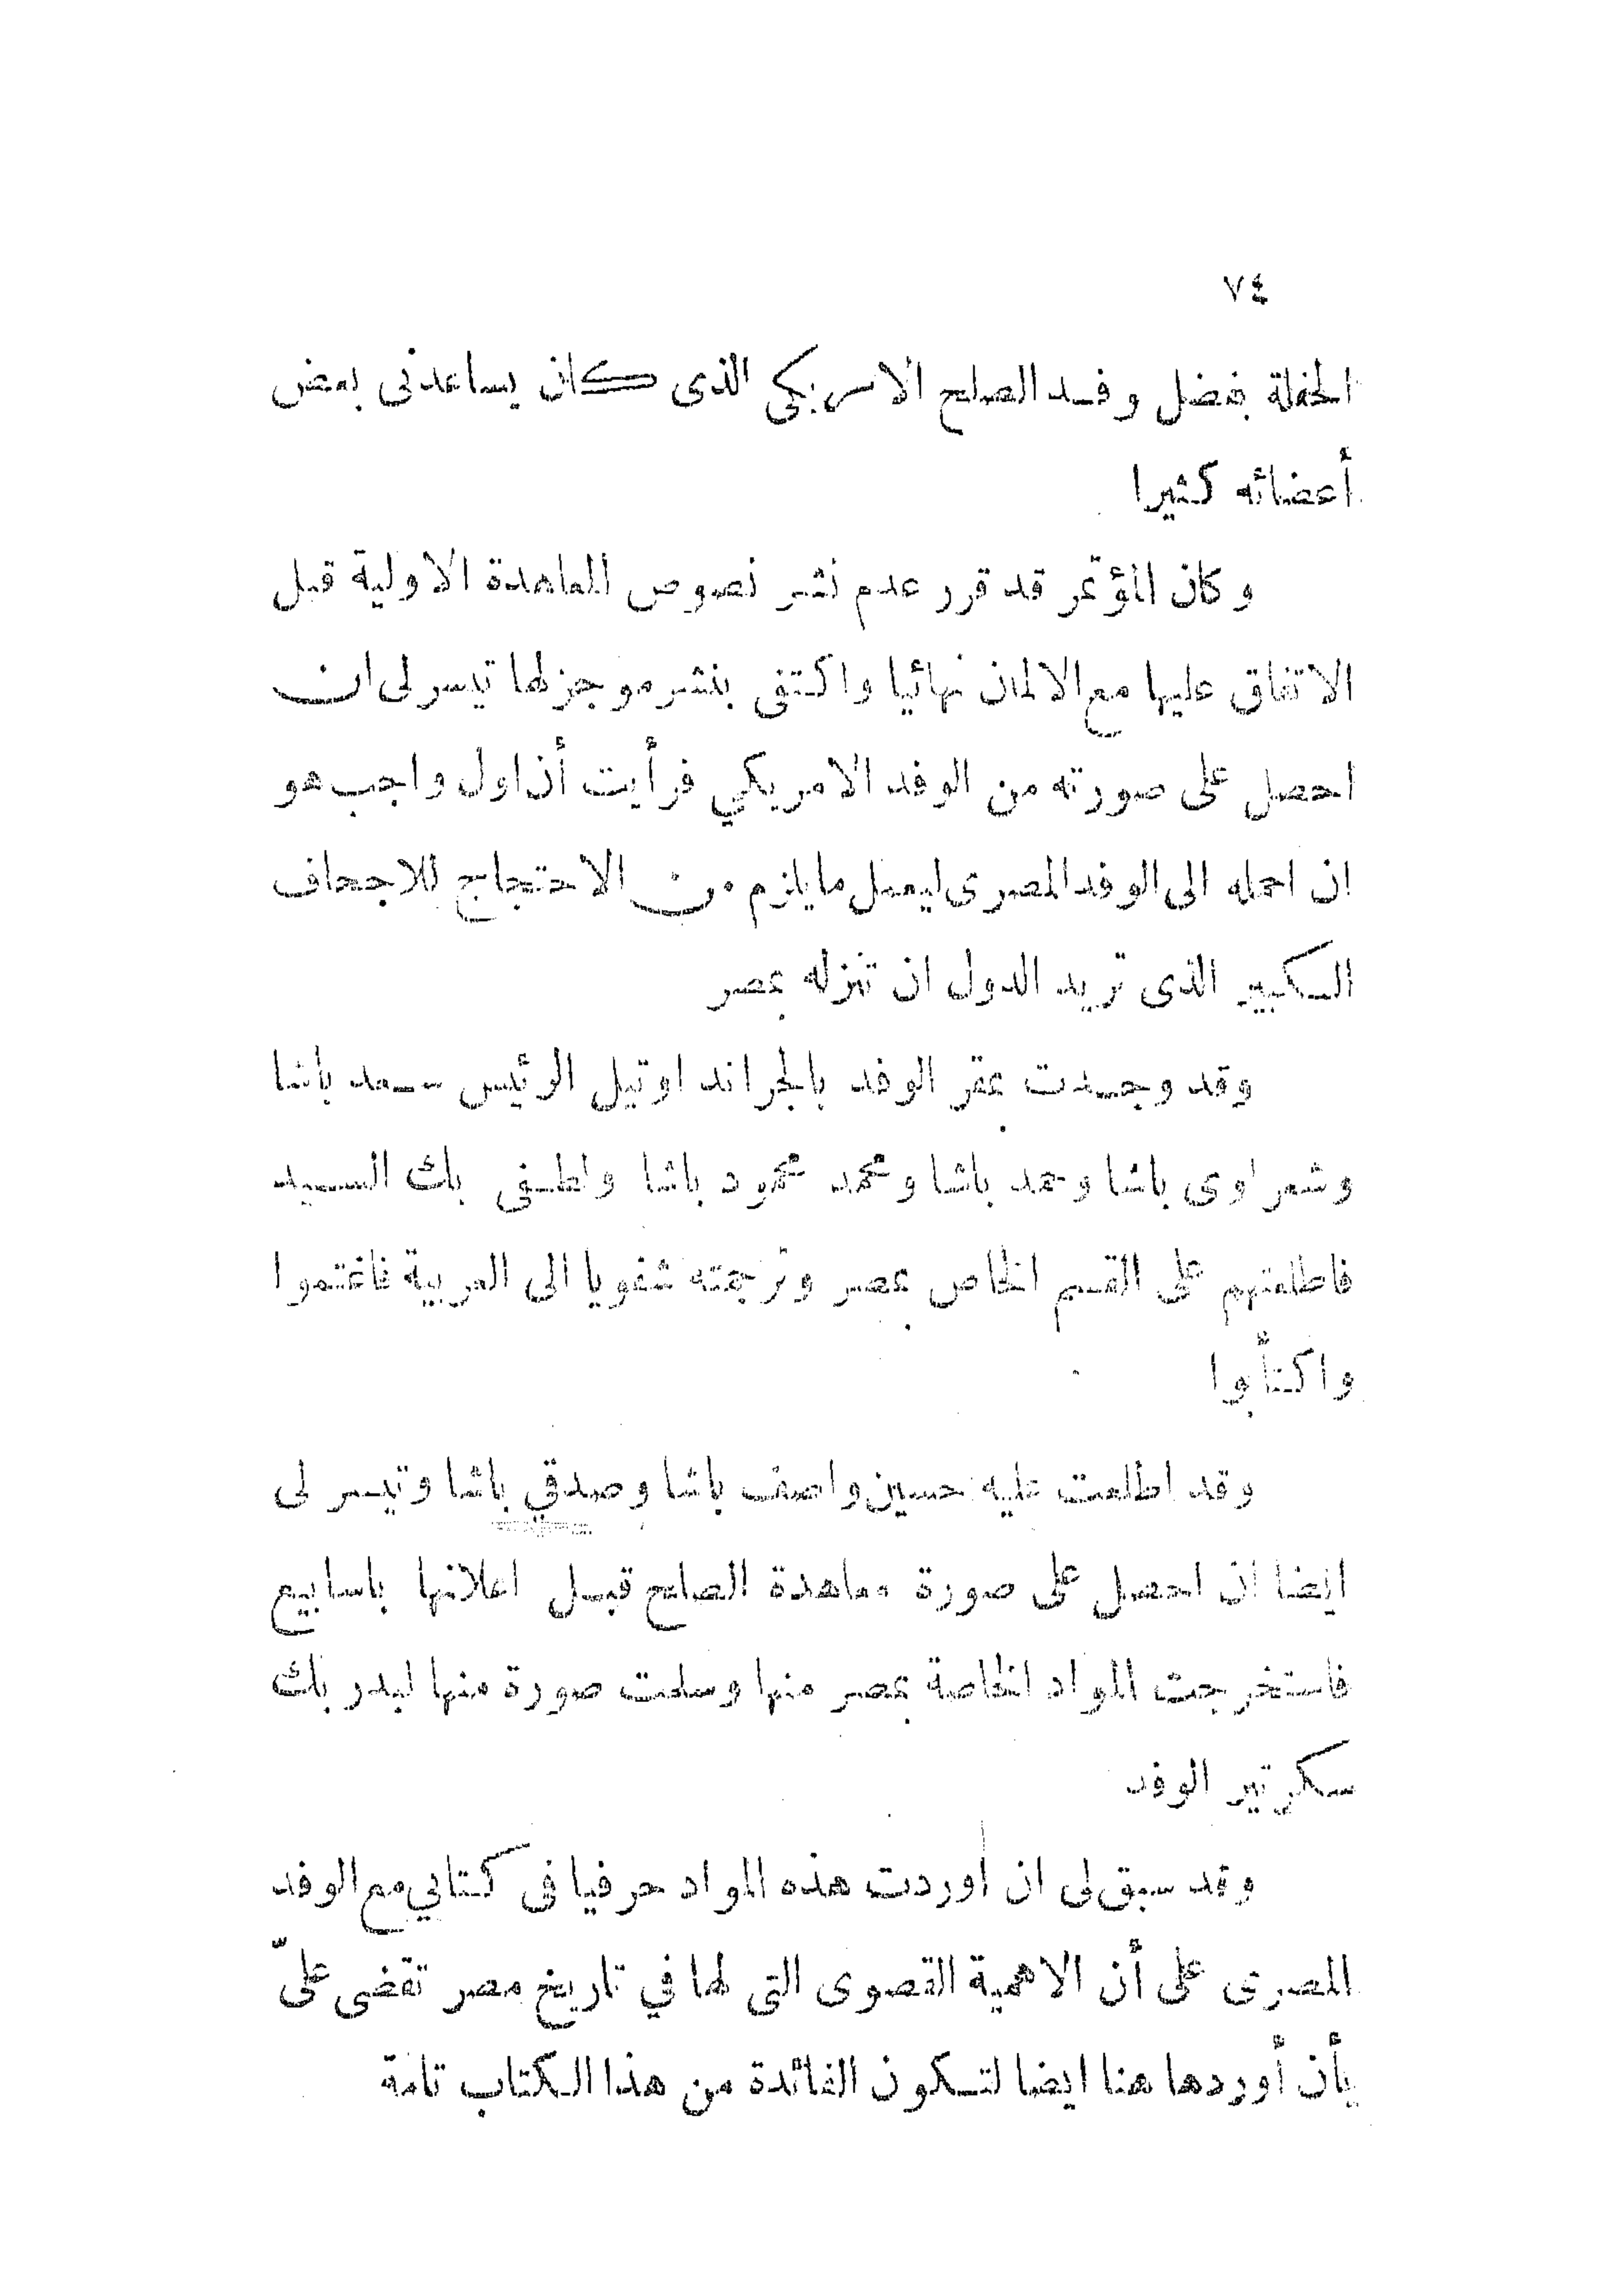 ٧٤
الحفلة بفضل وفد الصلح الامريكى الذى كان يساعدنى بعض
أعضائه كثيرا
وكان المؤتمر قد قرر عدم نشر نصوص المعاهدة الاولية قبل
الاتفاق عليها مع الالمان نهائيا واكتفى بنشر موجز لها تيسر لى ان
احصل على صورته من الوفد الامريكي فرأيت أن اول واجب هو
ان احمله الى الوفد المصرى ليعمل ما يلزم من الاحتجاج للاجحاف
الكبير الذى تريد الدول ان تنزله بمصر
وقد وجدت بمقر الوفد بالجراند اوتيل الرئيس سعد باشا
وشعراوى باشا وحمد باشا ومحمد محمود باشا ولطفى بك السيد
فاطلعتهم على القسم الخاص بمصر وترجمته شفويا الى العربية فاغتموا
واكتأبوا
وقد اطلعت عليه حسين واصف باشا وصدقي باشا وتيسر لى
ايضا ان احصل على صورة معاهدة الصلح قبل اعلانها باسابيع
فاستخرجت المواد الخاصة بمصر منها وسلمت صورة منها لبدر بك
سكرتير الوفد
وقد سبق لى ان اوردت هذه المواد حرفيا فى كتابي مع الوفد
المصرى على أن الاهمية القصوى التى لها في تاريخ مصر تقضى علىّ
بأن أوردها هنا ايضا لتكون الفائدة من هذا الكتاب تامة